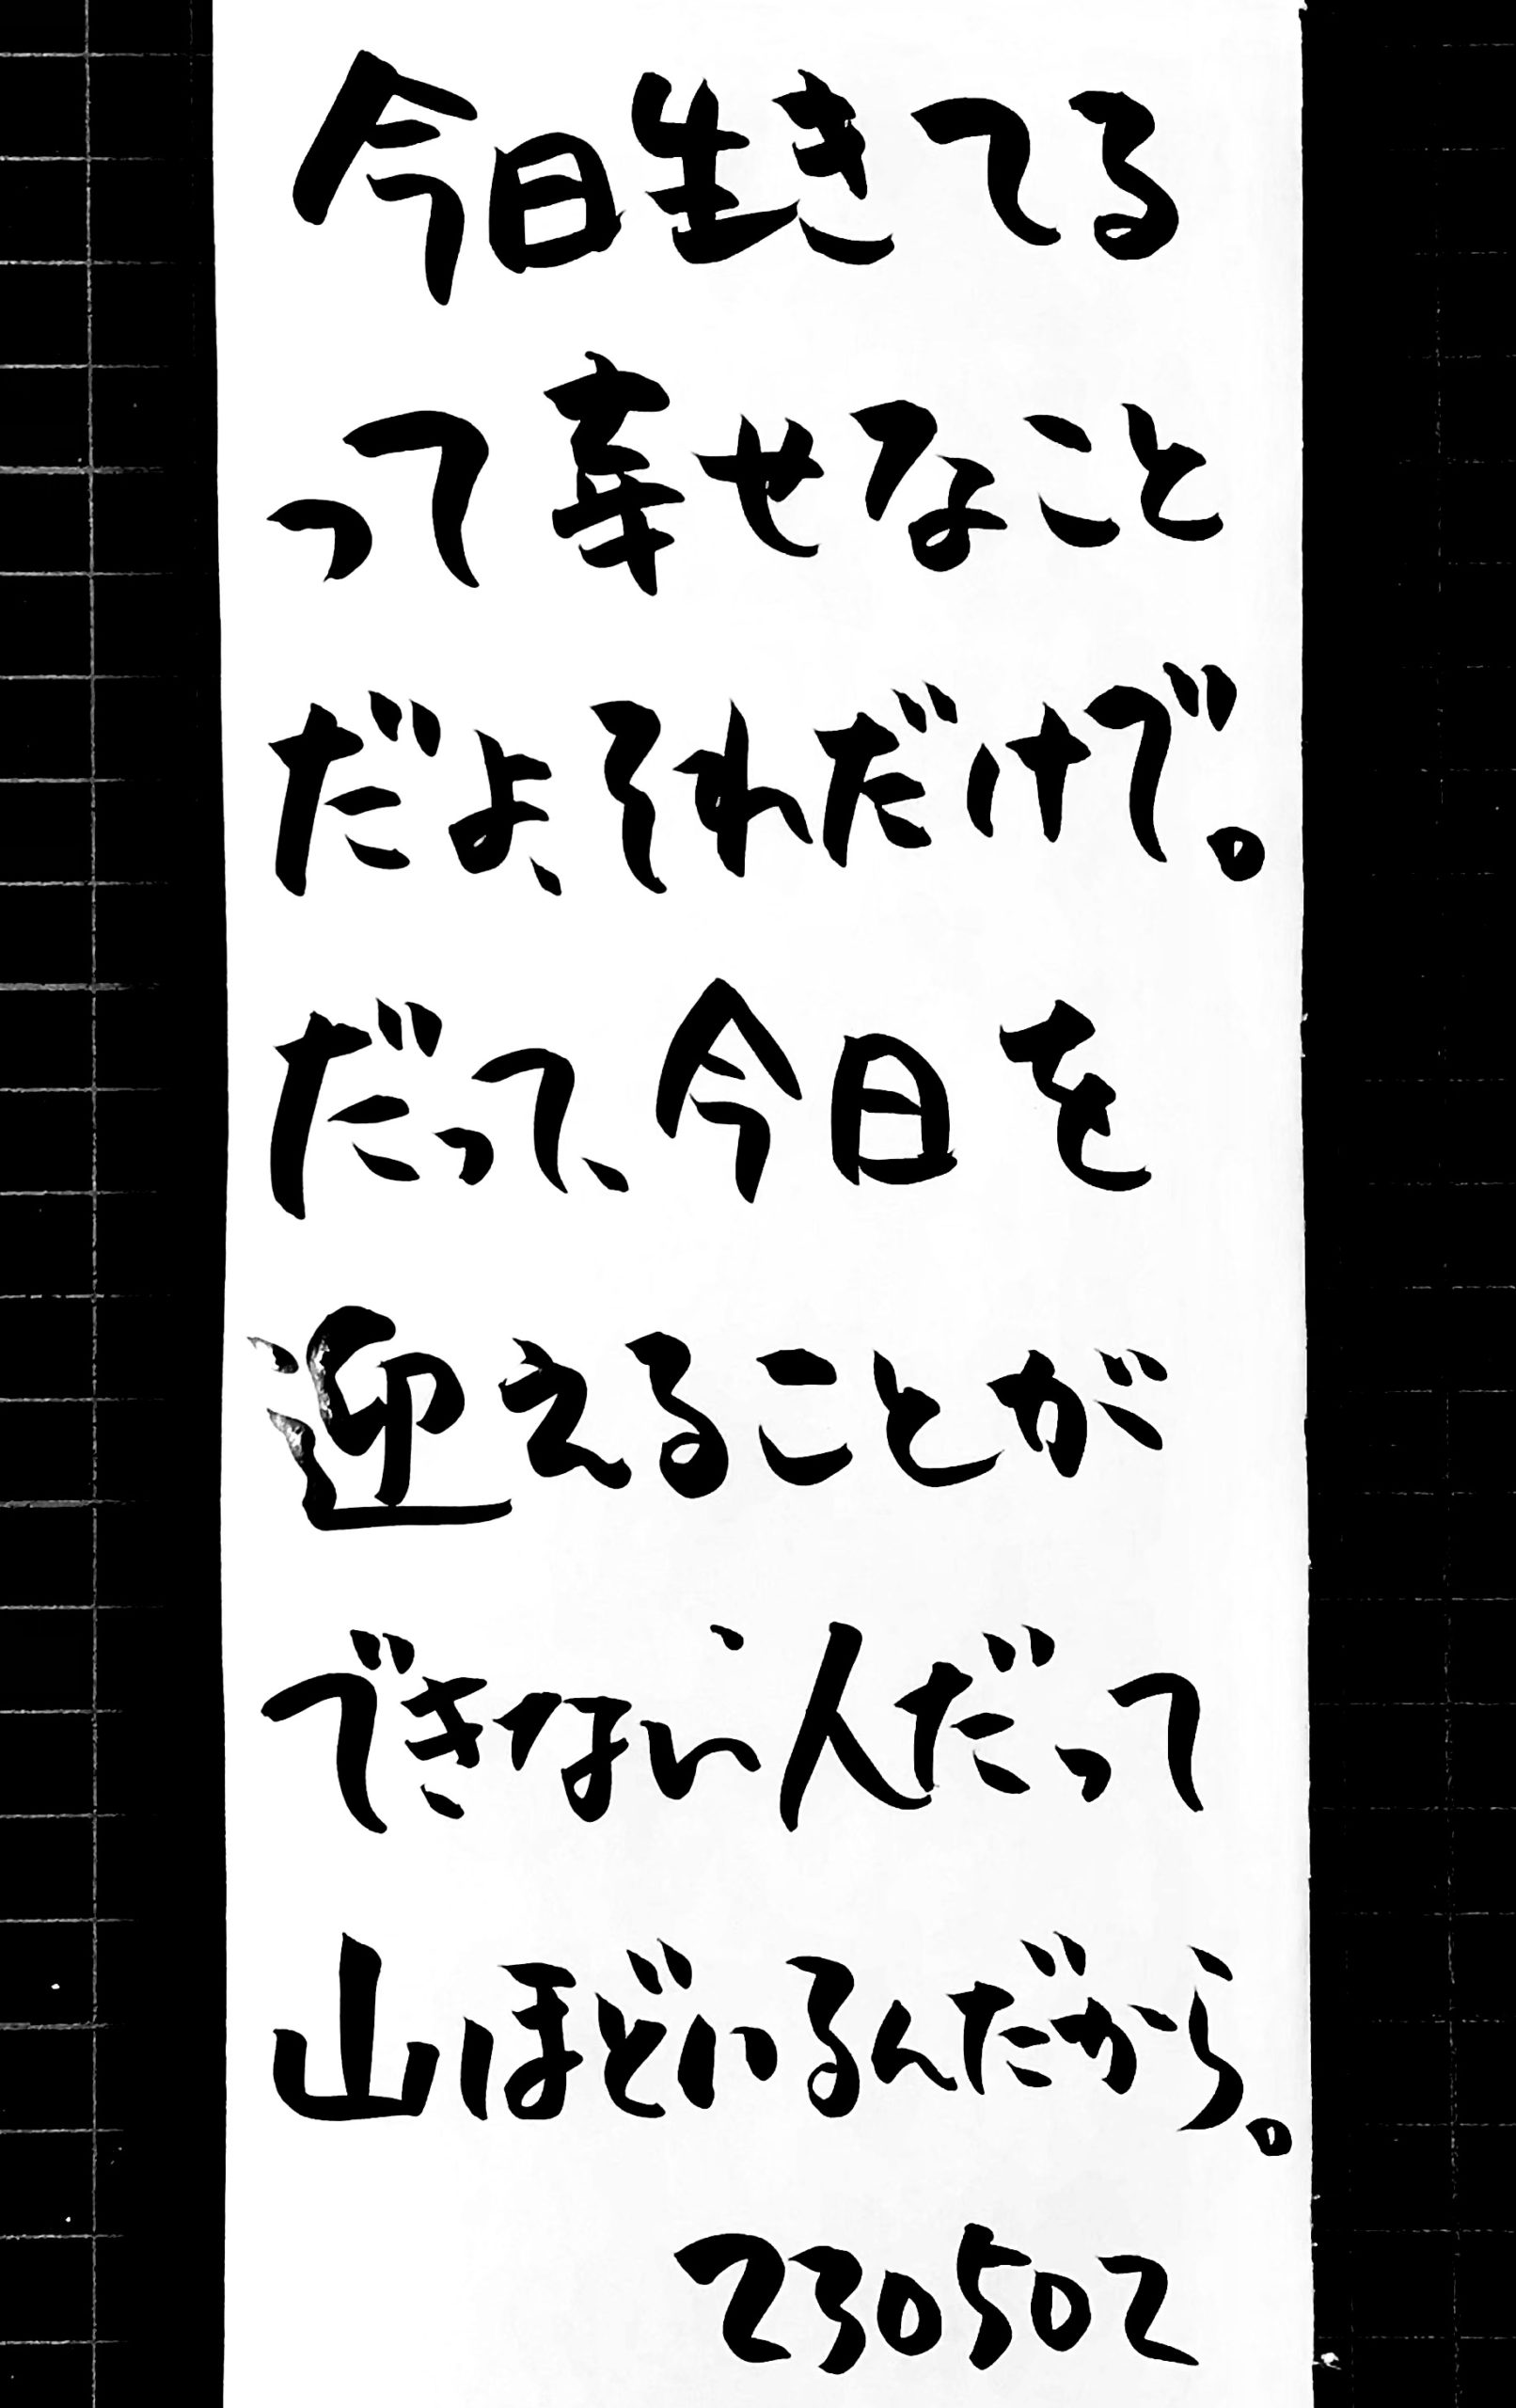 今日生きてる
って幸せなこと
だよ、それだけで。
だって、今日を
迎えることが
できない人だって
山ほどいるんだから。
230502